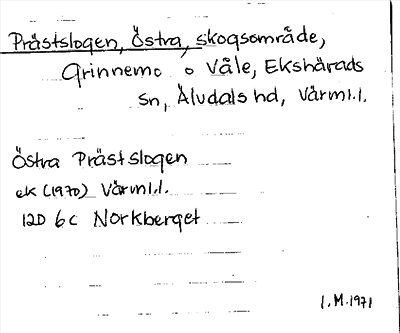 Prästslogen, Östra, skogsområde,
Grinnemo o Våle, Ekshärads
sn, Älvdals hd, Värml.l.
Östra Prästslogen
ek (1970) Värml.l.
12D 6c Norkberget
I.M. 1971